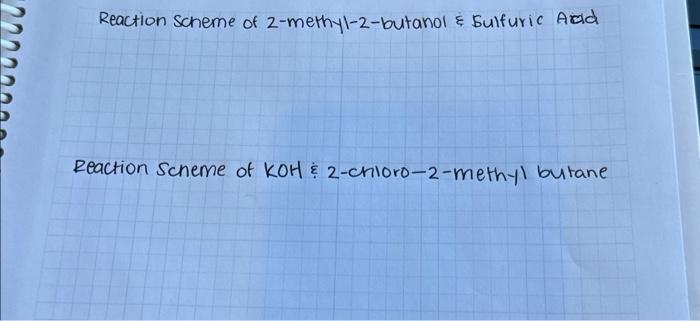 Reaction Scheme of 2-methyl-2-butanol & Sulfuric Acid
Reaction Scheme of KOH & 2-chloro-2-methyl butane